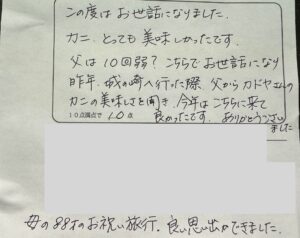 この度はお世話になりました。
カニ、とっても美味しかったです。
父は10回弱?こちらでお世話になり
昨年、城の崎へ行った際、父からカドヤさんの
カニの美味しさを聞き、今年はこちらに来て
10点満点で 10 点
良かったです。ありがとうござい
ました
母の88才のお祝い旅行。良い思い出ができました。